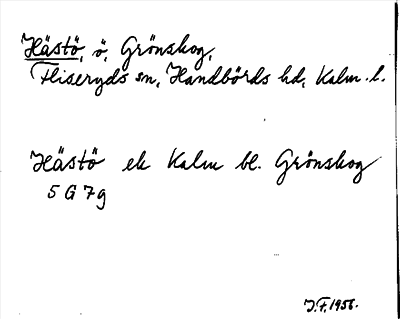 Hästö, ö, Grönskog,
Fliseryds sn, Handbörds hd, Kalm. l.
Hästö ek Kalm bl. Grönskog
5 G 7g
J.F. 1956.